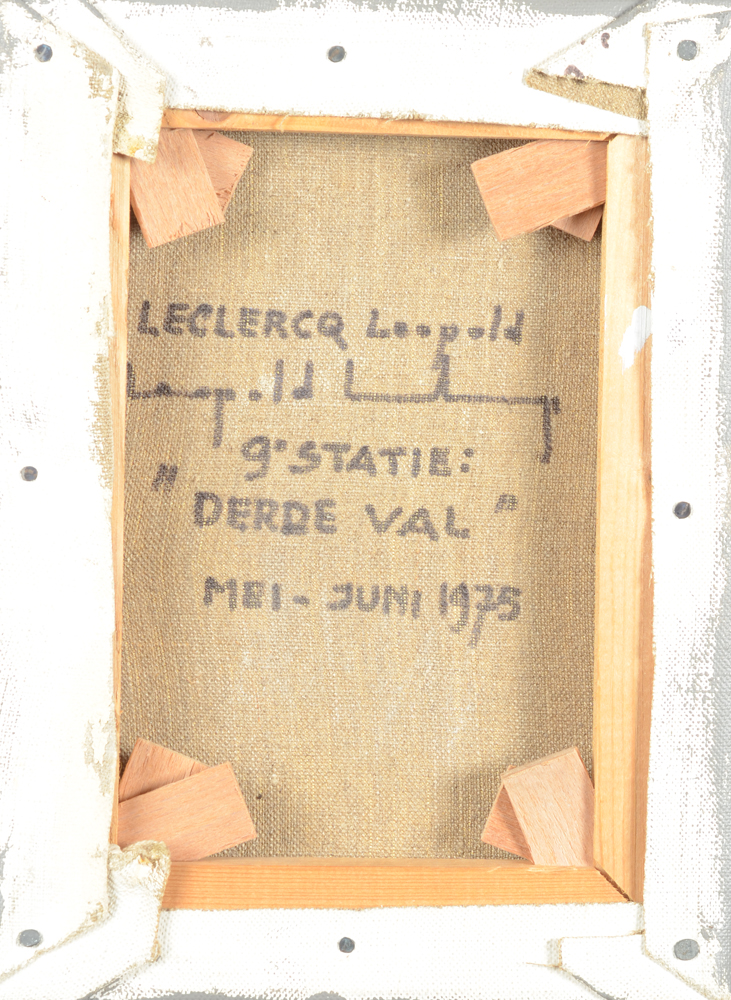 LECLERCQ Leopold
Leopold L
9e STATIE:
"DERDE VAL"
MEI - JUNI 1975